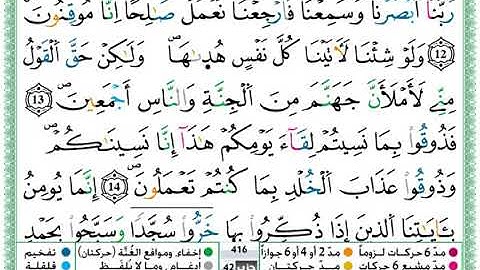 رَبَّنَآ أَبْصَرْنَا وَسَمِعْنَا فَٱرْجِعْنَا نَعْمَلْ صَٰلِحًا إِنَّا مُوقِنُونَ
(12) وَلَوْ شِئْنَا لَأٓتَيْنَا كُلَّ نَفْسٍ هُدَىٰهَا وَلَٰكِنْ حَقَّ ٱلْقَوْلُ
مِنِّي لَأَمْلَأَنَّ جَهَنَّمَ مِنَ ٱلْجِنَّةِ وَٱلنَّاسِ أَجْمَعِينَ (13)
فَذُوقُوا۟ بِمَا نَسِيتُمْ لِقَآءَ يَوْمِكُمْ هَٰذَآ إِنَّا نَسِينَٰكُمْ
وَذُوقُوا۟ عَذَابَ ٱلْخُلْدِ بِمَا كُنتُمْ تَعْمَلُونَ (14) إِنَّمَا يُومِنُ
بِـَٔايَٰتِنَا ٱلَّذِينَ إِذَا ذُكِّرُوا۟ بِهَا خَرُّوا۟ سُجَّدًا وَسَبَّحُوا۟ بِحَمْدِ
مدّ 6 حركات لزوماً مدّ 2 أو 4 أو 6 جوازاً 416 إخفاء، ومواقع الغُنَّة (حركتان) تفخيم
مدّ مشبع 6 حركات مدّ حركتان 42 إدغام، وما لا يُلفَظ قلقلة